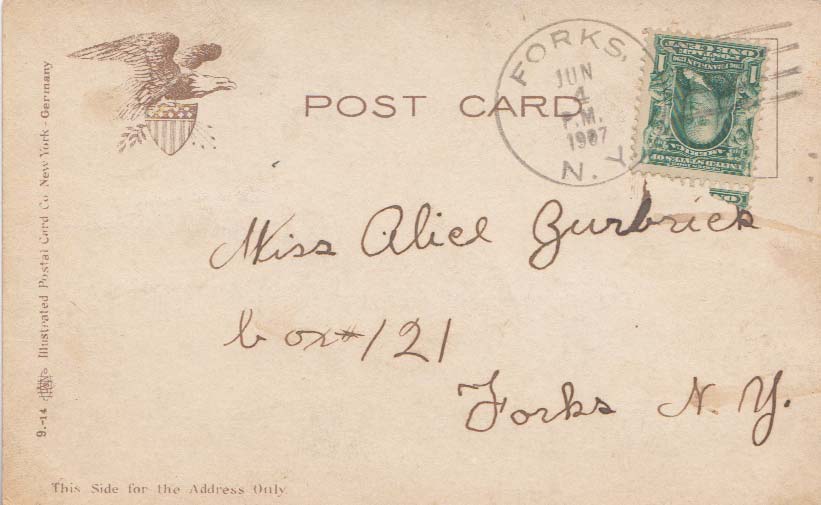 POST CARD
FORKS,
JUN
4
P.M.
1907
N.Y.
POSTAGE
ONE CENT
1 1
UNITED STATES OF
AMERICA
Miss Alice Zurbrick
box #121
Forks N.Y.
9.-14 Illustrated Postal Card Co New York-Germany
This Side for the Address Only.